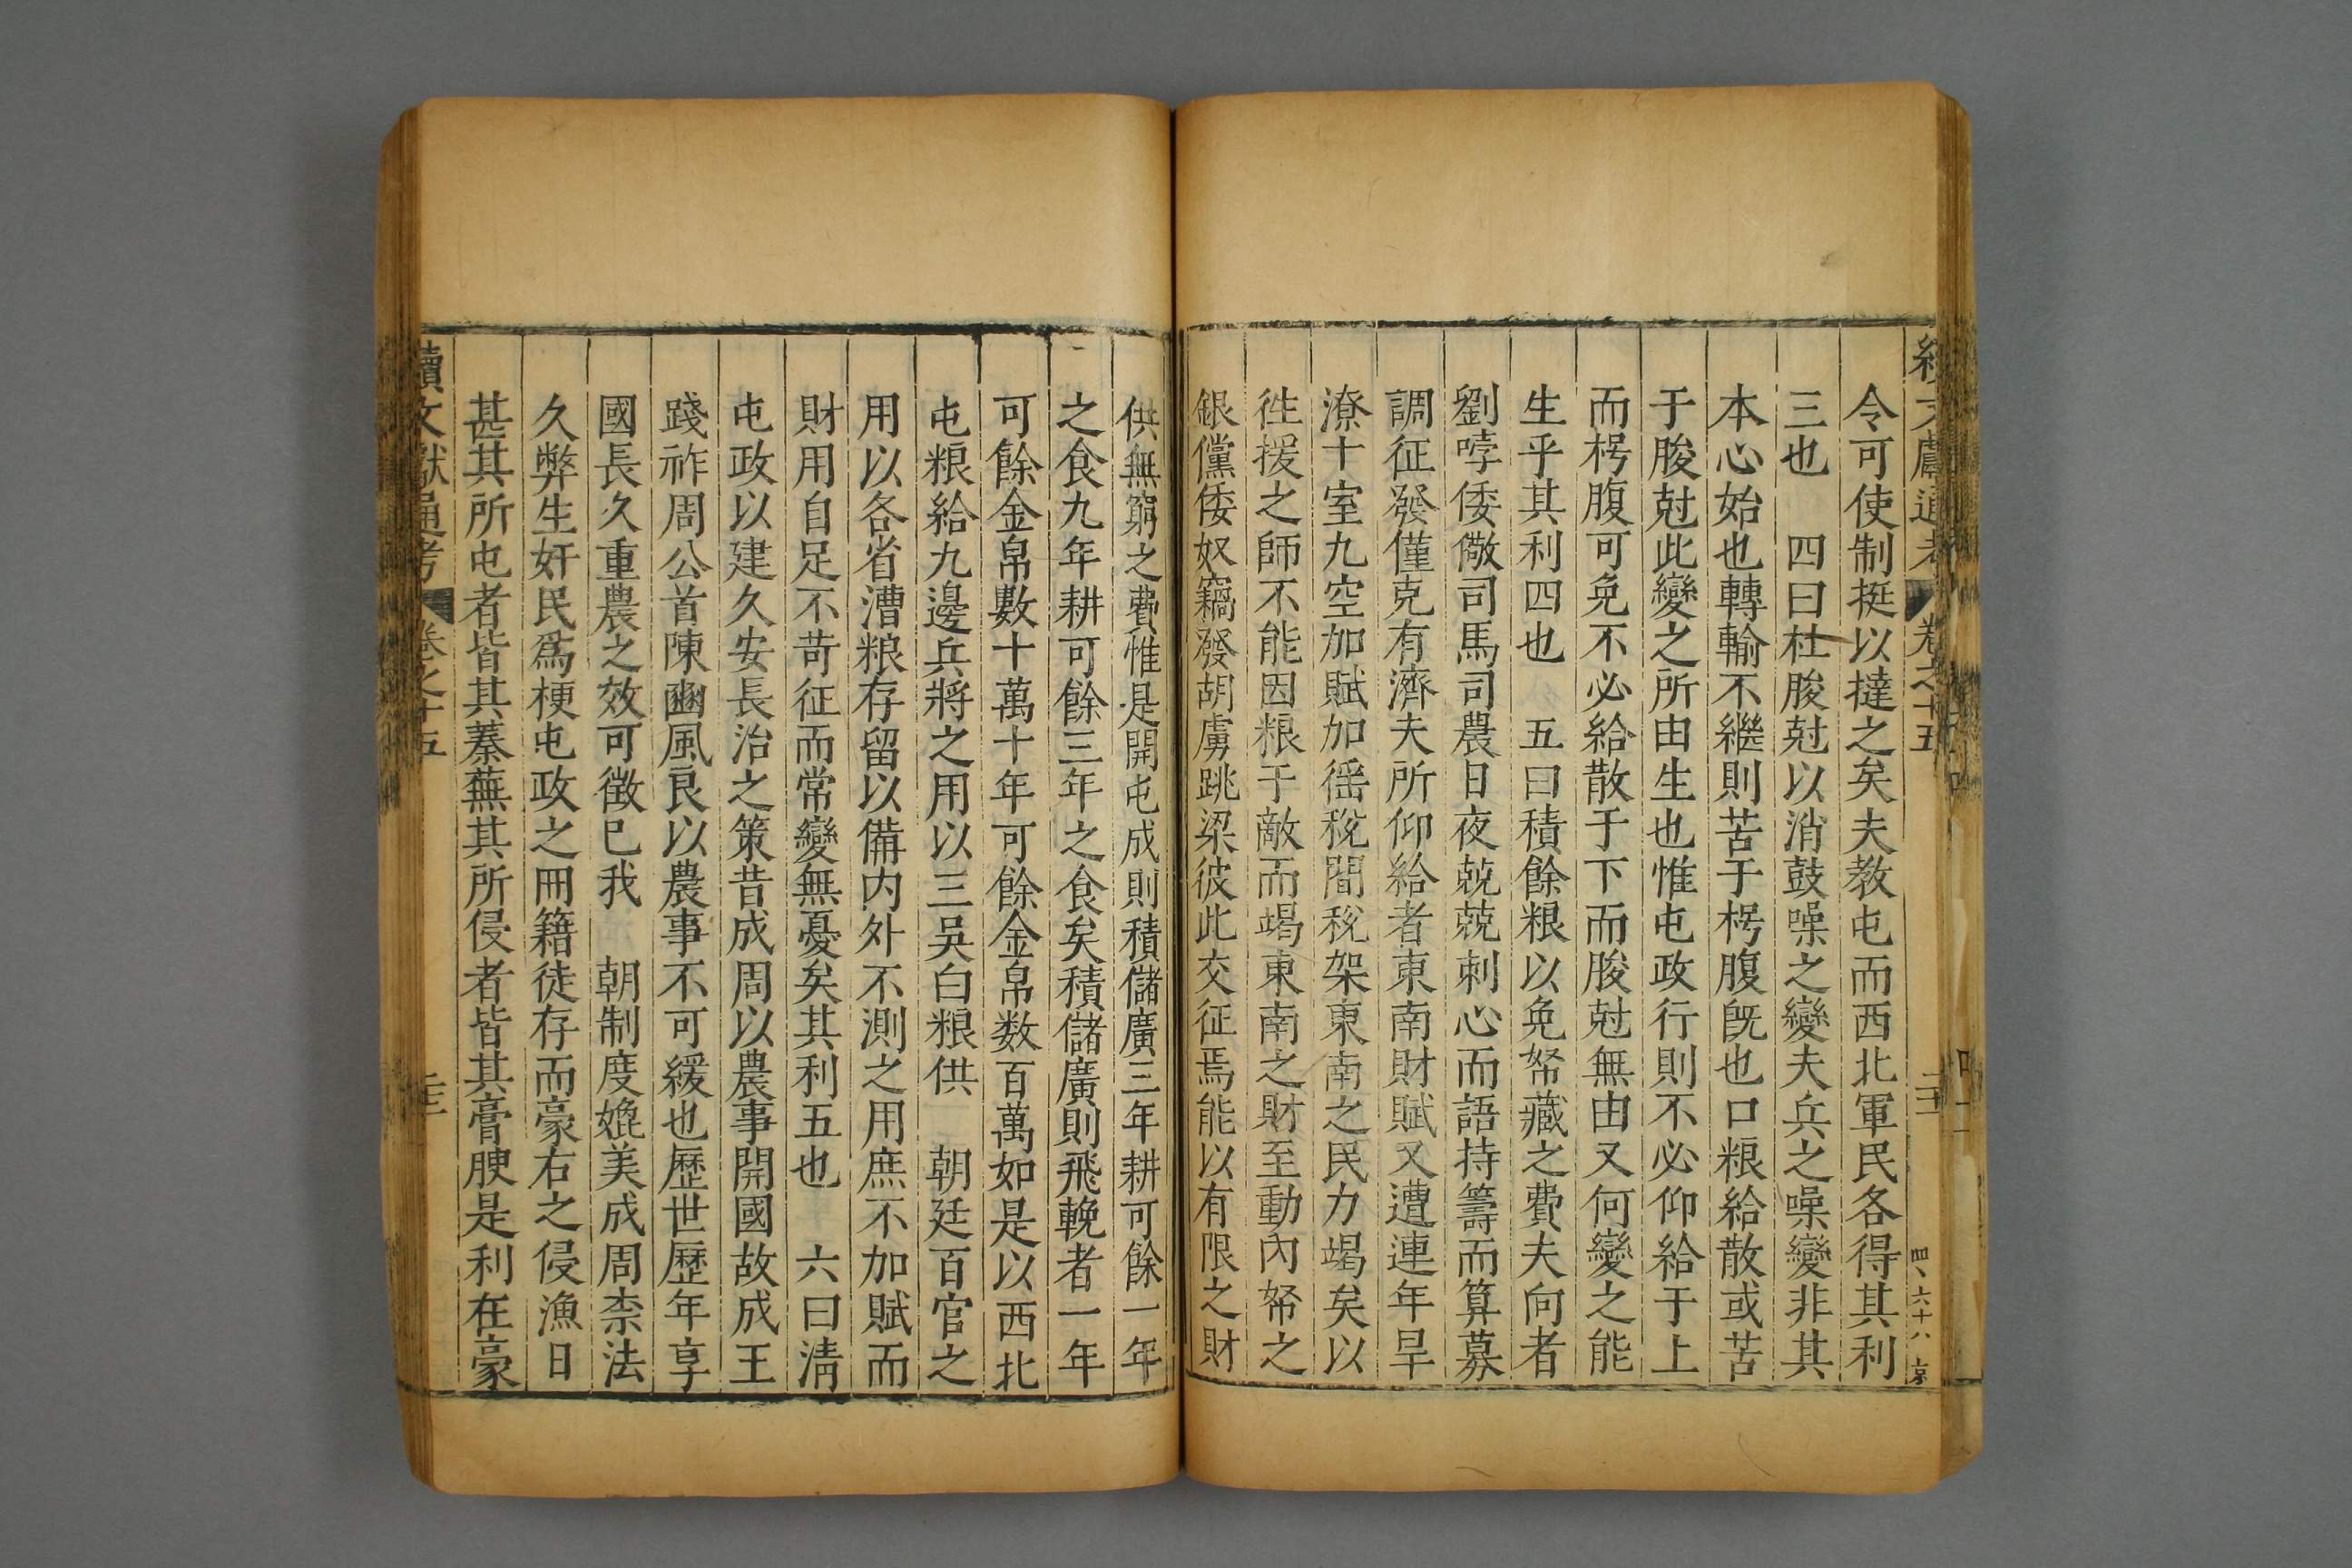 續文獻通考 卷之十五
四、六十八 京
令可使制挺以撻之矣夫教屯而西北軍民各得其利
三也 四曰杜朘尅以消鼓噪之變夫兵之噪變非其
本心始也轉輸不繼則苦于枵腹旣也口粮給散或苦
于朘尅此變之所由生也惟屯政行則不必仰給于上
而枵腹可免不必給散于下而朘尅無由又何變之能
生乎其利四也 五曰積餘粮以免帑藏之費夫向者
劉哱倭儆司馬司農日夜兢兢刺心而語持籌而算募
調征發僅克有濟夫所仰給者東南財賦又遭連年旱
潦十室九空加賦加徭稅間稅架東南之民力竭矣以
徃援之師不能因粮于敵而竭東南之財至動內帑之
銀儻倭奴竊發胡虜跳梁彼此交征焉能以有限之財
供無窮之費惟是開屯成則積儲廣三年耕可餘一年
之食九年耕可餘三年之食矣積儲廣則飛輓者一年
可餘金帛數十萬十年可餘金帛数百萬如是以西北
屯粮給九邊兵將之用以三吳白粮供 朝廷百官之
用以各省漕粮存留以備内外不測之用庶不加賦而
財用自足不苛征而常變無憂矣其利五也 六曰清
屯政以建久安長治之策昔成周以農事開國故成王
踐祚周公首陳豳風良以農事不可緩也歷世歷年享
國長久重農之效可徵已我 朝制度媲美成周柰法
久弊生奸民爲梗屯政之冊籍徒存而豪右之侵漁日
甚其所屯者皆其蓁蕪其所侵者皆其膏腴是利在豪
續文獻通考 卷之十五